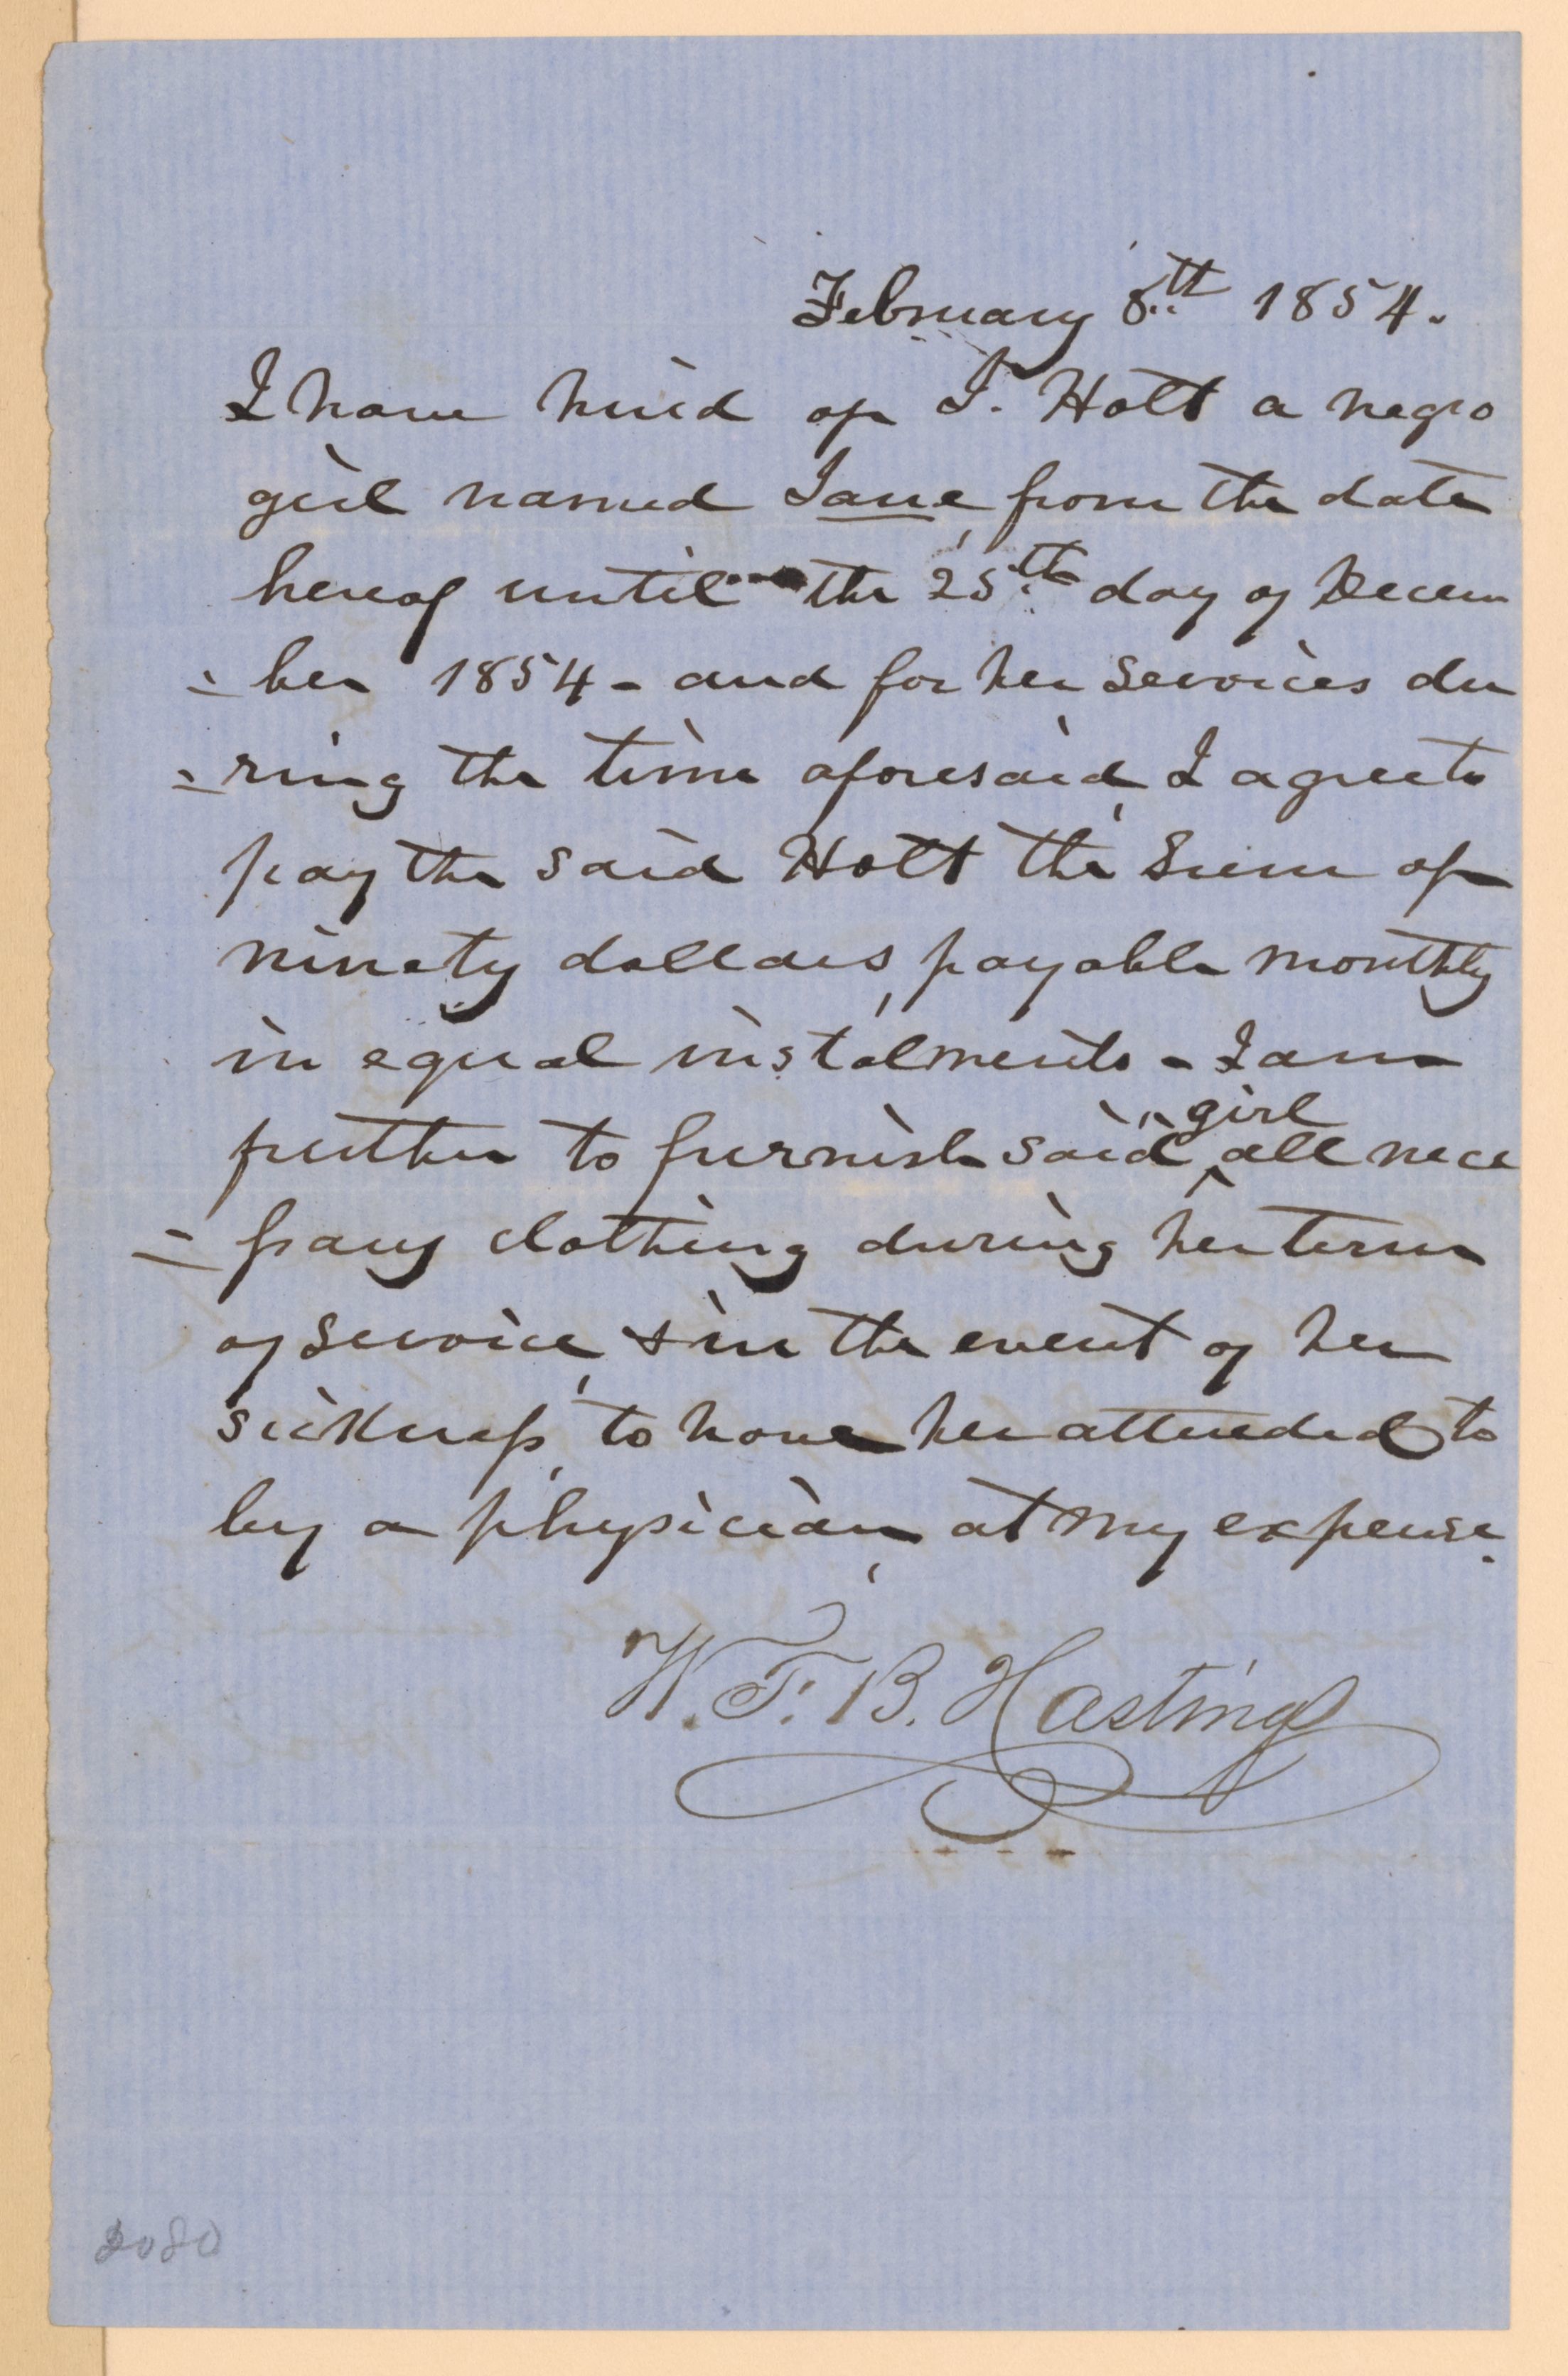 February 8th 1854.
I have hired of J. Holt a negro
girl named Jane from the date
hereof until the 25th day of Decem
= ber 1854 - and for her services du
= ring the time aforesaid, I agree to
pay the said Holt the sum of
ninety dollars, payable monthly
in equal instalments - I am
further to furnish said ^girl all nece
= ssary clothing during her term
of service, & in the event of her
sickness, to have her attended to
by a physician, at my expense.
W. F. B. Hastings
2080